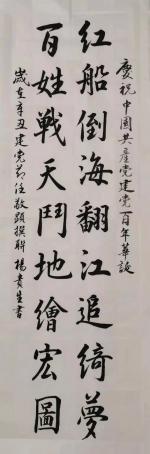 慶祝中國共產黨建黨百年華誕
紅船倒海翻江追綺夢
百姓戰天鬥地繪宏圖
歲在辛丑建党节任敬顕撰聯楊貴生書